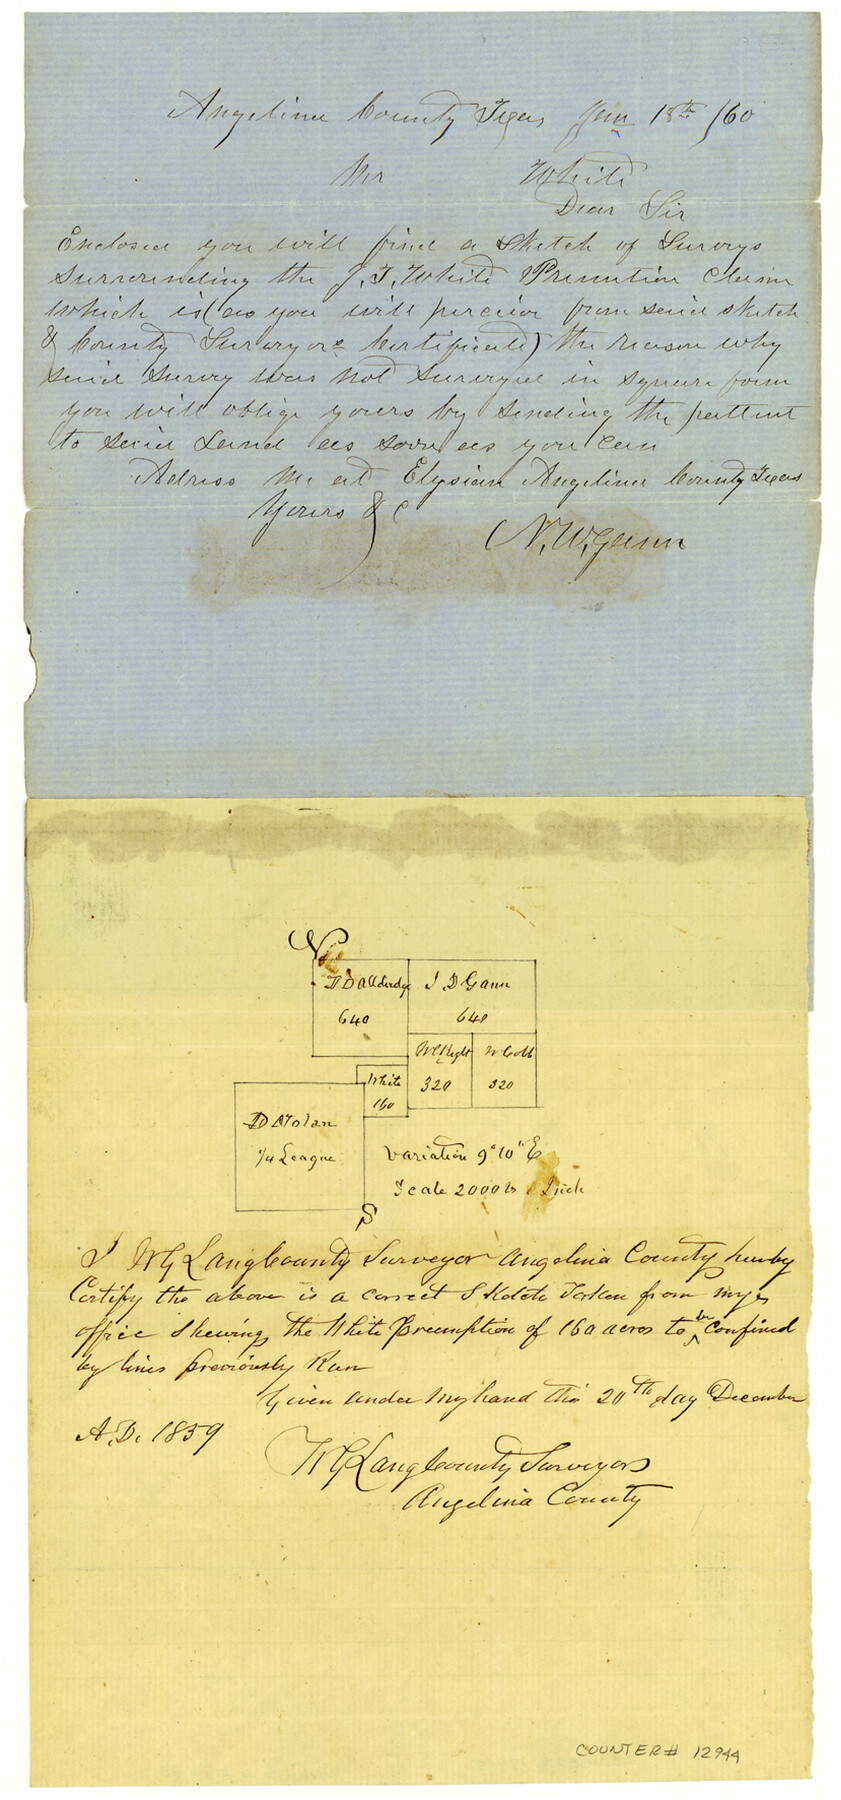 Angelina County Texas Jan 18th /60
Mr White
Dear Sir
Enclosed you will find a sketch of Surveys
Surrounding the J. T. White Premtion Claim
which is (as you will percive from said sketch
& County Surveyors Certificate) the reason why
said survey was not surveyed in square form
you will oblige yours by sending the pattent
to said Land as soon as you can
Adress Me at Elysian Angelina County Texas
Yours & C
N. W. Gunn
N
640
J D Gann
640
320
W Cobb
320
White
160
D Nolan
1/4 League
Variation 9° 10" E
Scale 2000 vs Inch
S
I WG Lang County Surveyor Angelina County hereby
Certify the above is a correct Sketch Taken from my
office Shewing the White Preemption of 160 acres to be confined
by lines Previously Run
Given under My hand this 20th day December
A. D. 1859
WG Lang County Surveyor
Angelina County
COUNTER# 12944